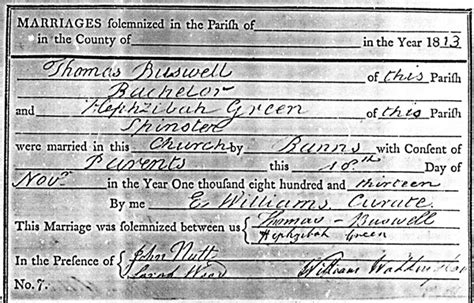 MARRIAGES solemnized in the Parish of
in the County of in the Year 1813
Thomas Buswell of this Parish
Bachelor
and Hephzibah Green of this Parish
Spinster
were married in this Church by Banns with Consent of
Parents this 18th Day of
Novr in the Year One thousand eight hundred and thirteen
By me E Williams Curate
This Marriage was solemnized between us Thomas Buswell
Hephzibah Green
In the Presence of John Nutt
Sarah William
No. 7.